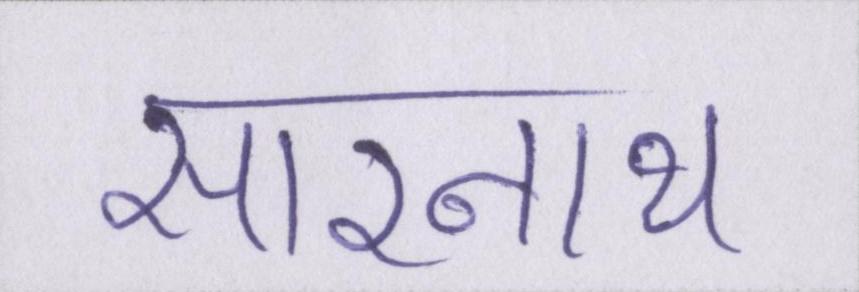 सारनाथ